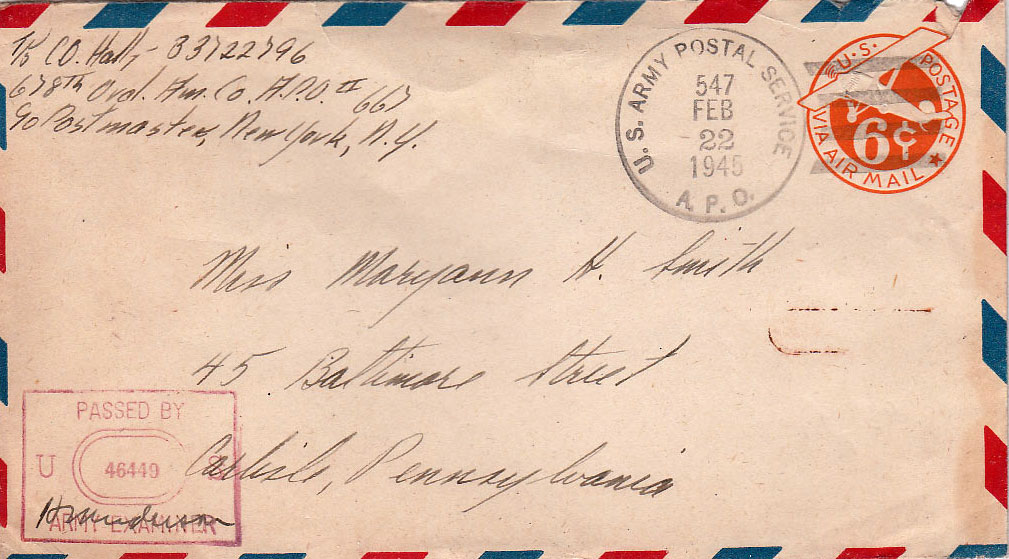 T/5 C.O. Hall, - 33722796
678th Ord. Am. Co. A.P.O. # 667
℅ Postmaster, New York, N.Y.
U. S. ARMY POSTAL SERVICE
547
FEB
22
1945
A. P. O.
U.S. POSTAGE
6¢
VIA AIR MAIL
Miss Maryann H. Smith
45 Baltimore Street
Carlisle, Pennsylvania
PASSED BY
U 46449 S
ARMY EXAMINER